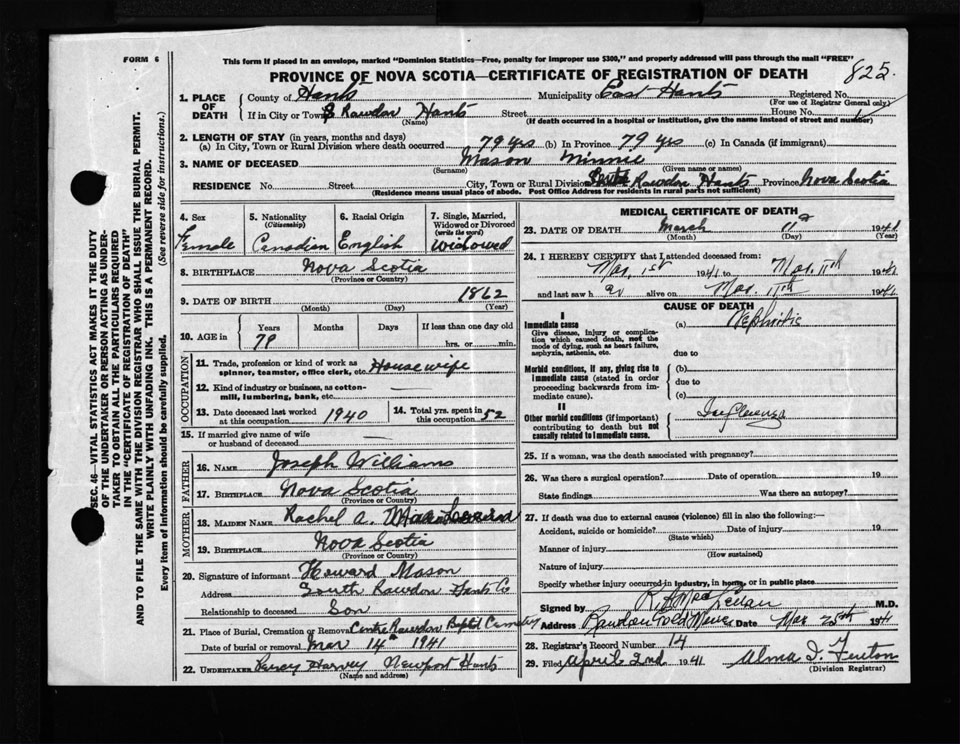 FORM 6
This form if placed in an envelope, marked "Dominion Statistics—Free, penalty for improper use $300," and properly addressed will pass through the mail "FREE"
PROVINCE OF NOVA SCOTIA—CERTIFICATE OF REGISTRATION OF DEATH
825
1. PLACE OF DEATH
County of Hants Municipality of East Hants Registered No.
(For use of Registrar General only)
If in City or Town S Rawdon Hants Street House No.
(Name) (If death occurred in a hospital or institution, give the name instead of street and number)
2. LENGTH OF STAY (in years, months and days)
(a) In City, Town or Rural Division where death occurred 79 yrs (b) In Province 79 yrs (c) In Canada (if immigrant)
3. NAME OF DECEASED Mason Minnie
(Surname) (Given name or names)
RESIDENCE No. Street City, Town or Rural Division South Rawdon Hants Province Nova Scotia
(Residence means usual place of abode. Post Office Address for residents in rural parts not sufficient)
4. Sex
Female
5. Nationality
(Citizenship)
Canadian
6. Racial Origin
English
7. Single, Married, Widowed or Divorced
(write the word)
Widowed
8. BIRTHPLACE Nova Scotia
(Province or Country)
9. DATE OF BIRTH 1862
(Month) (Day) (Year)
10. AGE in Years Months Days If less than one day old
79 hrs. or min.
OCCUPATION
11. Trade, profession or kind of work as Housewife
spinner, teamster, office clerk, etc.
12. Kind of industry or business, as cotton-
mill, lumbering, bank, etc. —
13. Date deceased last worked at this occupation 1940
14. Total yrs. spent in this occupation 52
15. If married give name of wife or husband of deceased —
FATHER
16. NAME Joseph Williams
17. BIRTHPLACE Nova Scotia
(Province or Country)
MOTHER
18. MAIDEN NAME Rachel A.
19. BIRTHPLACE Nova Scotia
(Province or Country)
20. Signature of informant Howard Mason
Address South Rawdon Hants Co
Relationship to deceased Son
21. Place of Burial, Cremation or Removal Centre Rawdon Baptist Cemetery
Date of burial or removal Mar 14th 1941
22. UNDERTAKER Percy Harvey Newport Hants
(Name and address)
MEDICAL CERTIFICATE OF DEATH
23. DATE OF DEATH March 11 1941
(Month) (Day) (Year)
24. I HEREBY CERTIFY that I attended deceased from:
Mar. 1st 1941 to Mar. 11th 1941
and last saw h er alive on Mar. 11th 1941
CAUSE OF DEATH
I
Immediate cause
Give disease, injury or complica-
tion which caused death, not the
mode of dying, such as heart failure,
asphyxia, asthenia, etc.
(a) Nephritis
due to
Morbid conditions, if any, giving rise to
immediate cause (stated in order
proceeding backwards from im-
mediate cause).
(b)
due to
(c)
II
Other morbid conditions (if important)
contributing to death but not
causally related to immediate cause.
Influenza
25. If a woman, was the death associated with pregnancy?
26. Was there a surgical operation? Date of operation 19
State findings Was there an autopsy?
27. If death was due to external causes (violence) fill in also the following:—
Accident, suicide or homicide? Date of injury 19
(State which)
Manner of injury
(How sustained)
Nature of injury
Specify whether injury occurred in industry, in home, or in public place
Signed by M.D.
Address Rawdon Gold Mines Date Mar 25th 1941
28. Registrar's Record Number 14
29. Filed April 2nd 1941 Alma I. Fenton
(Division Registrar)
SEC. 46—VITAL STATISTICS ACT MAKES IT THE DUTY
OF THE UNDERTAKER OR PERSON ACTING AS UNDER-
TAKER TO OBTAIN ALL THE PARTICULARS REQUIRED
IN THE "CERTIFICATE OF REGISTRATION OF DEATH"
AND TO FILE THE SAME WITH THE DIVISION REGISTRAR WHO SHALL ISSUE THE BURIAL PERMIT.
WRITE PLAINLY WITH UNFADING INK. THIS IS A PERMANENT RECORD.
Every item of information should be carefully supplied. (See reverse side for instructions.)